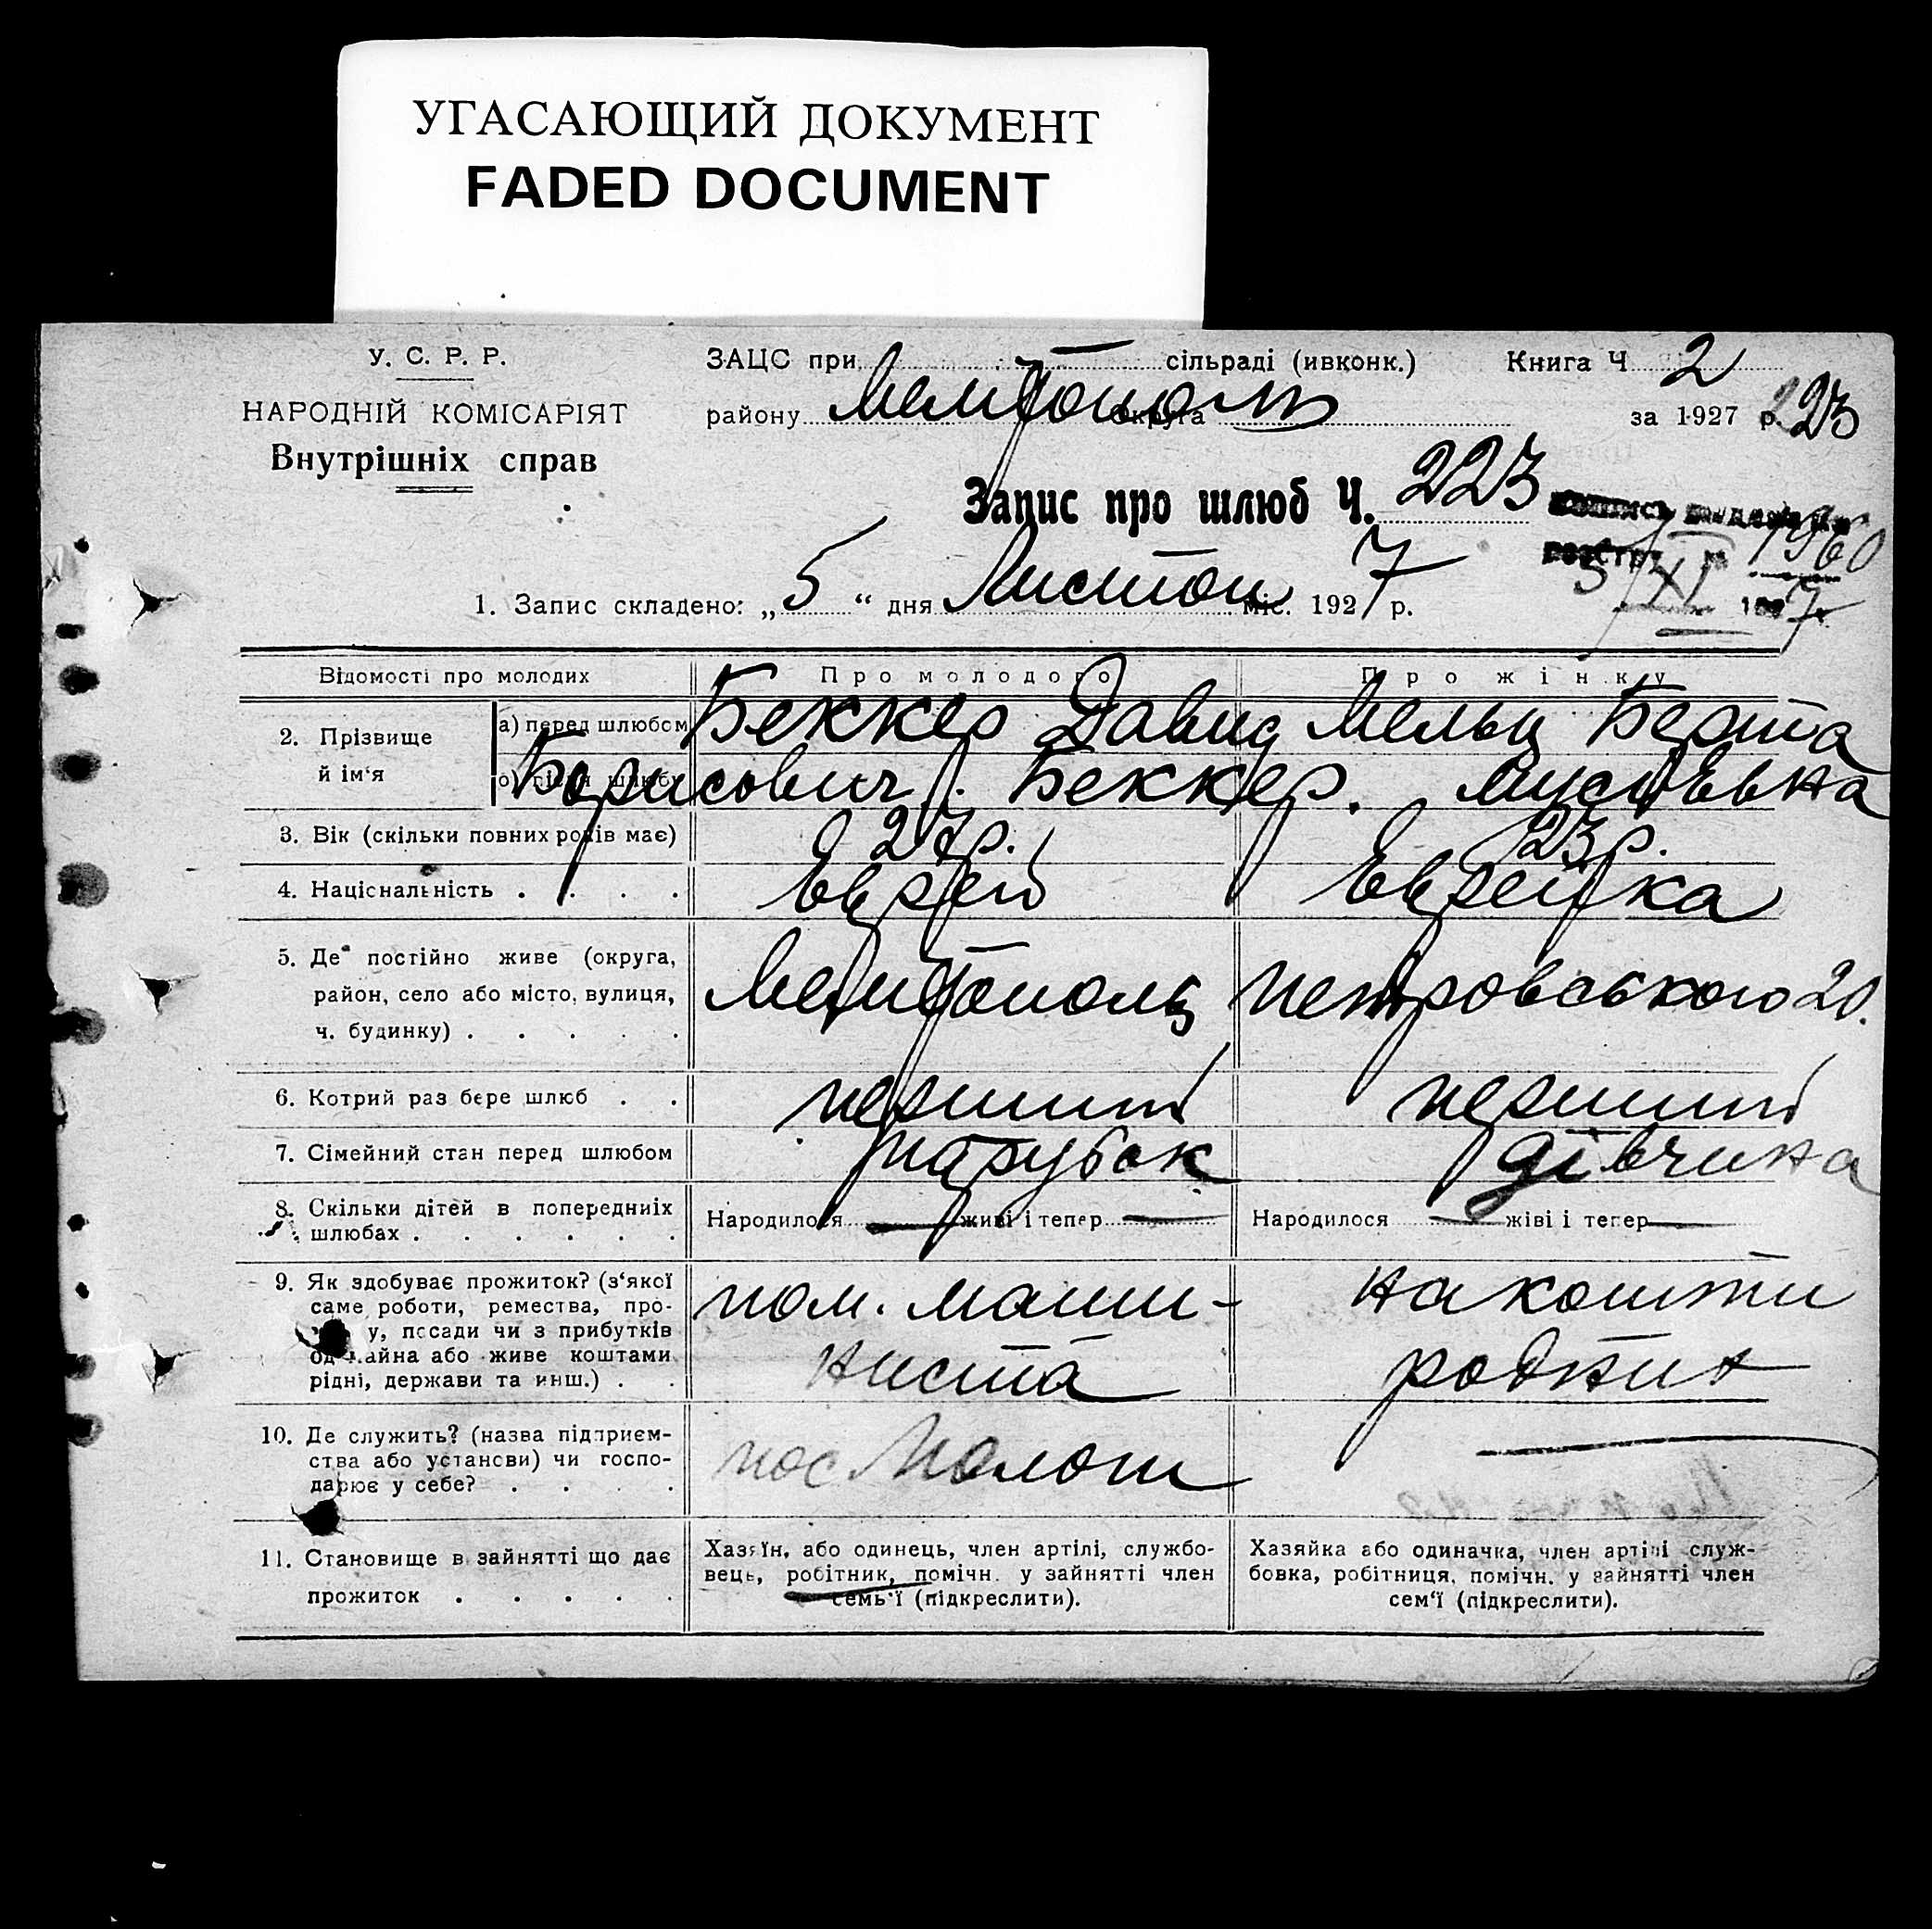 УГАСАЮЩИЙ ДОКУМЕНТ
FADED DOCUMENT
У. С. Р. Р.
НАРОДНІЙ КОМІСАРІЯТ
Внутрішніх справ
ЗАЦС при сільраді (ивконк.) Книга Ч 2
району Мелітополь Округа за 1927 р. 223
Запис про шлюб Ч. 223
1960
5/XI 1927
1. Запис складено: „5“ дня Листоп міс. 1927 р.
Відомості про молодих
Про молодого
Про жінку
2. Прізвище й ім‘я
а) перед шлюбом
Беккер Давид
Мельц Берта
б) після шлюбу
Борисович. Беккер.
3. Вік (скільки повних років має)
27 р.
23 р.
4. Національність . . . .
Еврей
Еврейка
5. Де постійно живе (округа,
район, село або місто, вулиця,
ч. будинку) . . . . .
Мелитополь
Петровського 20.
6. Котрий раз бере шлюб . .
перший
перший
7. Сімейний стан перед шлюбом
парубок
дівчина
8. Скільки дітей в попередніх
шлюбах . . . . . .
Народилося — живі і тепер —
Народилося — жіві і тепер —
9. Як здобуває прожиток? (з‘якої
саме роботи, ремества, про-
у, посади чи з прибутків
од майна або живе коштами
рідні, держави та инш.) . .
пом. маши-
ниста
на кошти
родних
10. Де служить? (назва підприєм-
ства або установи) чи госпо-
дарює у себе? . . . .
Молот
—
11. Становище в зайнятті що дає
прожиток . . . . .
Хазяїн, або одинець, член артілі, службо-
вець, робітник, помічн. у зайнятті член
семь‘ї (підкреслити).
Хазяйка або одиначка, член артілі служ-
бовка, робітниця, помічн. у зайнятті член
сем‘ї (підкреслити).